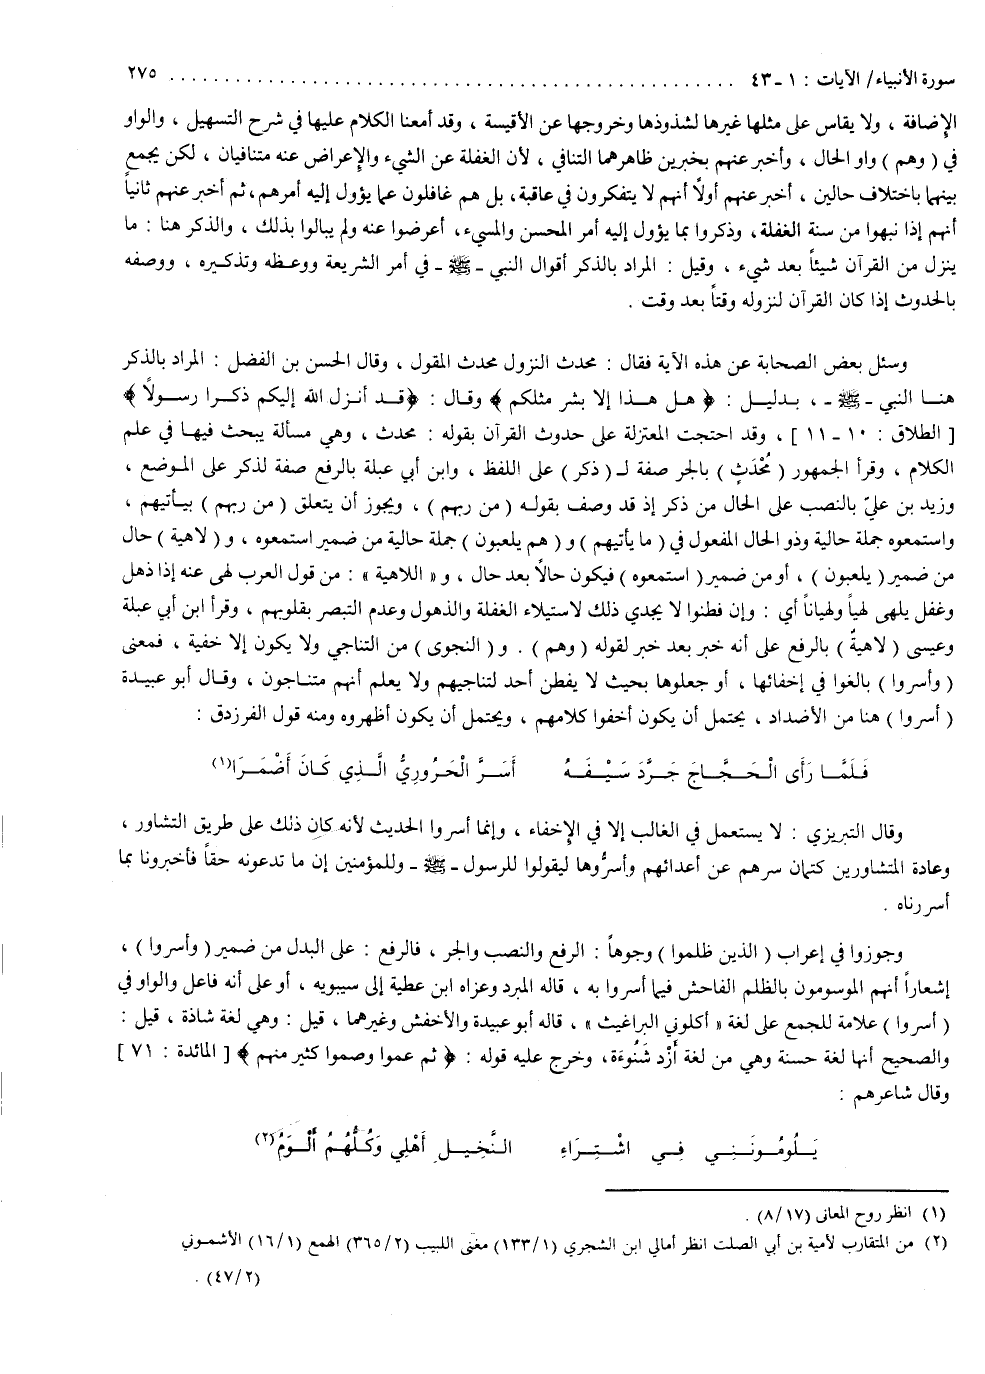 سورة الأنبياء/ الآيات : ١ـ٤٣ . . . . . . . . . . . . . . . . . . . . . . . . . . . . . . . . . . . . . . . . . . ٢٧٥
الإضافة ، ولا يقاس على مثلها غيرها لشذوذها وخروجها عن الأقيسة ، وقد أمعنا الكلام عليها في شرح التسهيل ، والواو
في ( وهم ) واو الحال ، وأخبر عنهم بخبرين ظاهرهما التنافي ، لأن الغفلة عن الشيء والإعراض عنه متنافيان ، لكن يجمع
بينهما باختلاف حالين ، أخبر عنهم أولاً أنهم لا يتفكرون في عاقبة، بل هم غافلون عما يؤول إليه أمرهم، ثم أخبر عنهم ثانياً
أنهم إذا نبهوا من سنة الغفلة، وذكروا بما يؤول إليه أمر المحسن والمسيء، أعرضوا عنه ولم يبالوا بذلك ، والذكر هنا : ما
ينزل من القرآن شيئاً بعد شيء ، وقيل : المراد بالذكر أقوال النبي ـ ﷺ ـ في أمر الشريعة ووعظه وتذكيره ، ووصفه
بالحدوث إذا كان القرآن لنزوله وقتاً بعد وقت .
وسئل بعض الصحابة عن هذه الآية فقال : محدث النزول محدث المقول ، وقال الحسن بن الفضل : المراد بالذكر
هنا النبي ـ ﷺ ـ ، بدليل : ﴿ هل هذا إلا بشر مثلكم ﴾ وقال : ﴿قد أنزل الله إليكم ذكرا رسولاً ﴾
[ الطلاق : ١٠ ـ ١١ ] ، وقد احتجت المعتزلة على حدوث القرآن بقوله : محدث ، وهي مسألة يبحث فيها في علم
الكلام ، وقرأ الجمهور ( مُحْدَثٍ ) بالجر صفة لـ ( ذكر ) على اللفظ ، وابن أبي عبلة بالرفع صفة لذكر على الموضع ،
وزيد بن عليّ بالنصب على الحال من ذكر إذ قد وصف بقوله ( من ربهم ) ، ويجوز أن يتعلق ( من ربهم ) بيأتيهم ،
واستمعوه جملة حالية وذو الحال المفعول في ( ما يأتيهم ) و ( هم يلعبون ) جملة حالية من ضمير استمعوه ، و ( لاهية ) حال
من ضمير ( يلعبون ) ، أو من ضمير ( استمعوه ) فيكون حالاً بعد حال ، و « اللاهية » : من قول العرب لهى عنه إذا ذهل
وغفل يلهى لهياً ولهياناً أي : وإن فطنوا لا يجدي ذلك لاستيلاء الغفلة والذهول وعدم التبصر بقلوبهم ، وقرأ ابن أبي عبلة
وعيسى ( لاهيةٌ ) بالرفع على أنه خبر بعد خبر لقوله ( وهم ) . و ( النجوى ) من التناجي ولا يكون إلا خفية ، فمعنى
( وأسروا ) بالغوا في إخفائها ، أو جعلوها بحيث لا يفطن أحد لتناجيهم ولا يعلم أنهم متناجون ، وقال أبو عبيدة
( أسروا ) هنا من الأضداد ، يحتمل أن يكون أخفوا كلامهم ، ويحتمل أن يكون أظهروه ومنه قول الفرزدق :
فَلَمَّا رَأَى الْحَجَّاجَ جَرَّدَ سَيْفَهُ أَسَرَّ الْحَرُورِيُّ الَّذِي كَانَ أَضْمَرَا(١)
وقال التبريزي : لا يستعمل في الغالب إلا في الإخفاء ، وإنما أسروا الحديث لأنه كان ذلك على طريق التشاور ،
وعادة المتشاورين كتمان سرهم عن أعدائهم وأسرُّوها ليقولوا للرسول ـ ﷺ ـ وللمؤمنين إن ما تدعونه حقاً فأخبرونا بما
أسررناه .
وجوزوا في إعراب ( الذين ظلموا ) وجوهاً : الرفع والنصب والجر ، فالرفع : على البدل من ضمير ( وأسروا ) ،
إشعاراً أنهم الموسومون بالظلم الفاحش فيما أسروا به ، قاله المبرد وعزاه ابن عطية إلى سيبويه ، أو على أنه فاعل والواو في
( أسروا ) علامة للجمع على لغة « أكلوني البراغيث » ، قاله أبو عبيدة والأخفش وغيرهما ، قيل : وهي لغة شاذة ، قيل :
والصحيح أنها لغة حسنة وهي من لغة أَزْد شَنُوءَة، وخرج عليه قوله : ﴿ ثم عموا وصموا كثير منهم ﴾ [ المائدة : ٧١ ]
وقال شاعرهم :
يَلُومُونَنِي فِي اشْتِرَاءِ النَّخِيلِ أَهْلِي وَكُلُّهُمُ أَلْوَمُ(٢)
(١) انظر روح المعانى (٨/١٧) .
(٢) من المتقارب لأمية بن أبي الصلت انظر أمالي ابن الشجري (١٣٣/١) مغنى اللبيب (٣٦٥/٢) الهمع (١٦/١) الأشموني
(٤٧/٢) .